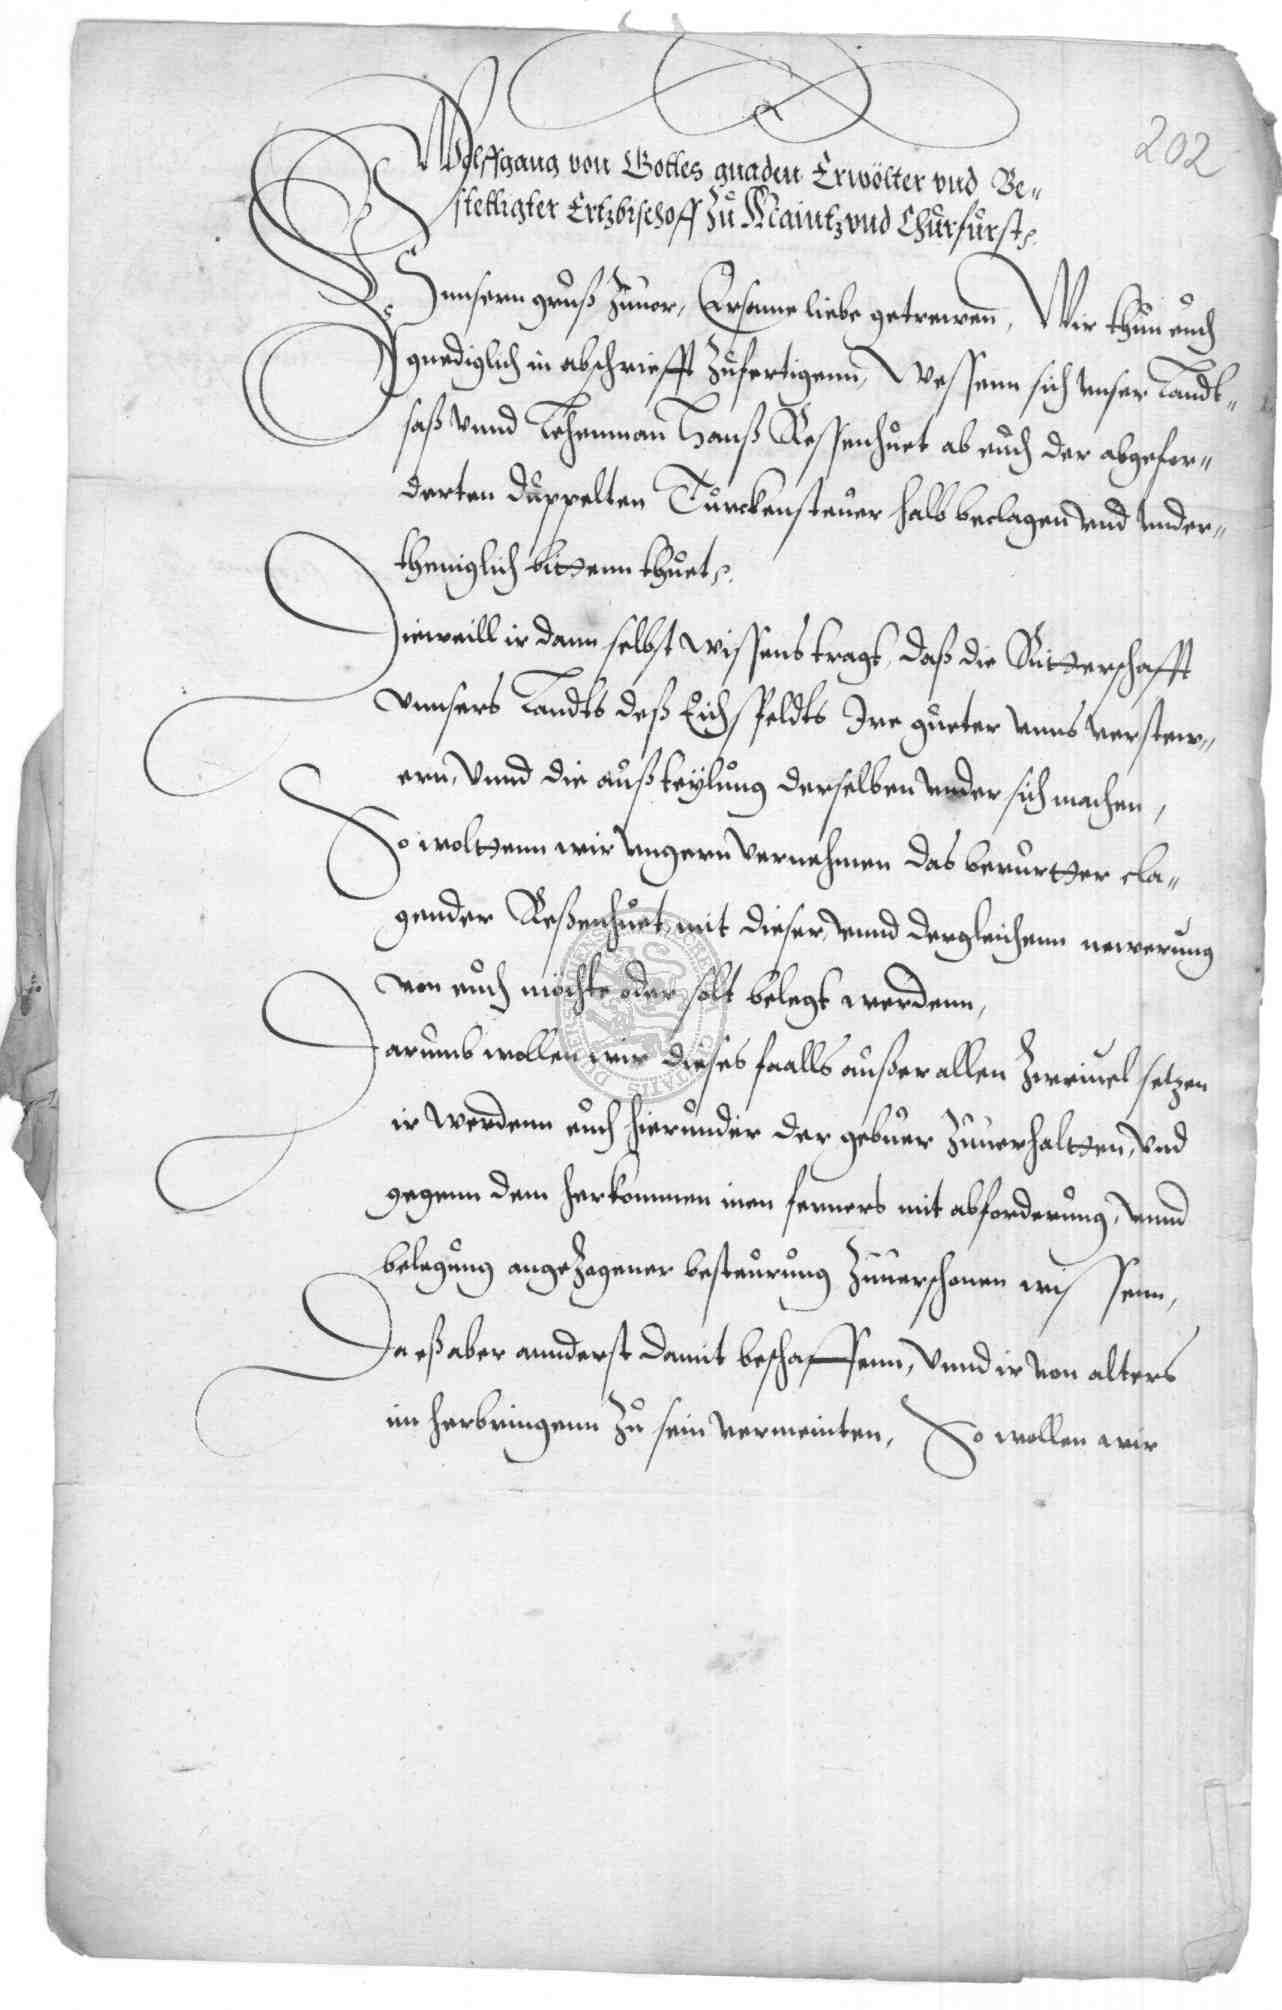 202
Wolffgang von Gottes gnaden Erwölter vnd Be-
stettigter Ertzbischoff Zu Maintz vnd Churfürst
unsern gruß Zuuor, Ersame liebe getrewenn, Wir thun euch
gnediglich in abschriefft Zufertigenn, Wessenn sich unser Landt-
saß vnnd Lehenman Hanß Kessenhuet ab euch der abgefor-
derten duppelten Turckensteuer halb beclagen vnd vnder-
theniglich bittenn thuet
Dieweill ir dann selbst wissens tragt, daß die Ritterschafft
vnnsers Landts deß Eichsfeldts Ire gueter vnns verstew-
ern, vnnd die außteylung derselben vnder sich machen,
So woltenn wir vngern vernehmen das berurtter cla-
gender Keßenhuet, mit dieser, vnnd dergleichenn newerung
von euch möchte oder solt belegt werdenn,
Darumb wollen wir dieses faalls außer allen Zweiuel setzen
ir werdenn euch hierunder der gebuer Zuuerhaltten, vnd
gegenn dem herkommen inen ferners mit abforderung, vnnd
belegung angeZogener besteurung Zuuerschonen wissenn,
Da eß aber annderst damit beschaffenn, vnnd ir von alters
im herbringenn Zu sein vermeinten, So wollen wir